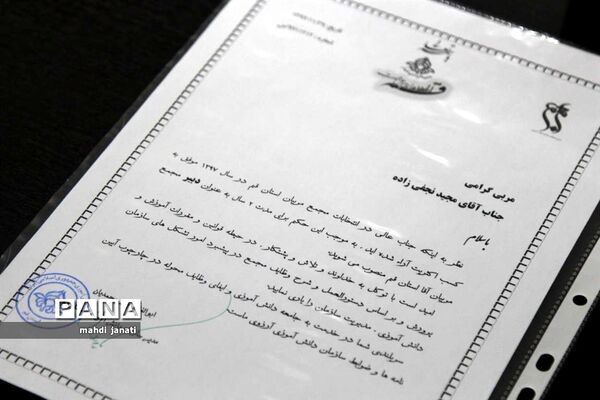 مربی گرامی
جناب آقای مجید نجفی زاده
با سلام
نظر به اینکه جناب عالی در انتخابات مجمع مربیان استان قم در سال ۱۳۹۷ موفق به
کسب اکثریت آراء شده اید. به موجب این حکم برای مدت ۲ سال به عنوان دبیر مجمع
مربیان آقا استان قم منصوب می شوید.
امید است با توکل به خداوند و تلاش و پشتکار، در حیطه قوانین و مقررات آموزش و
پرورش و بر اساس دستورالعمل و شرح وظایف مجمع در پیشبرد امور تشکل های سازمان
دانش آموزی، مدیریت سازمان را یاری نمایید.
سربلندی شما در خدمت به جامعه دانش آموزی و ایفای وظایف محوله در چارچوب آیین
نامه ها و ضوابط سازمان دانش آموزی آرزوی ماست.
PANA
mahdi janati